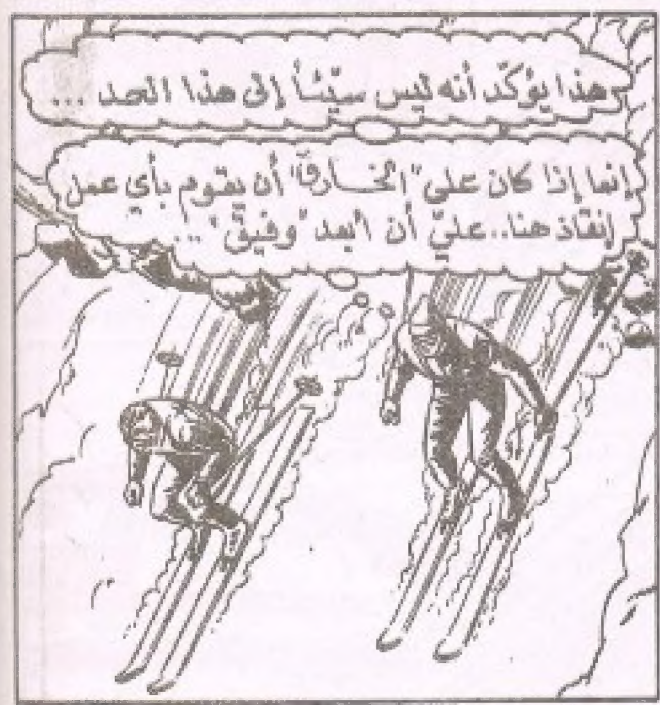 هذا يؤكّد أنه ليس سيّئاً إلى هذا الحد ...
إنما إذا كان على "الخارق" أن يقوم بأي عمل
إنقاذ هنا.. عليّ أن أبعد "وفيق" ...